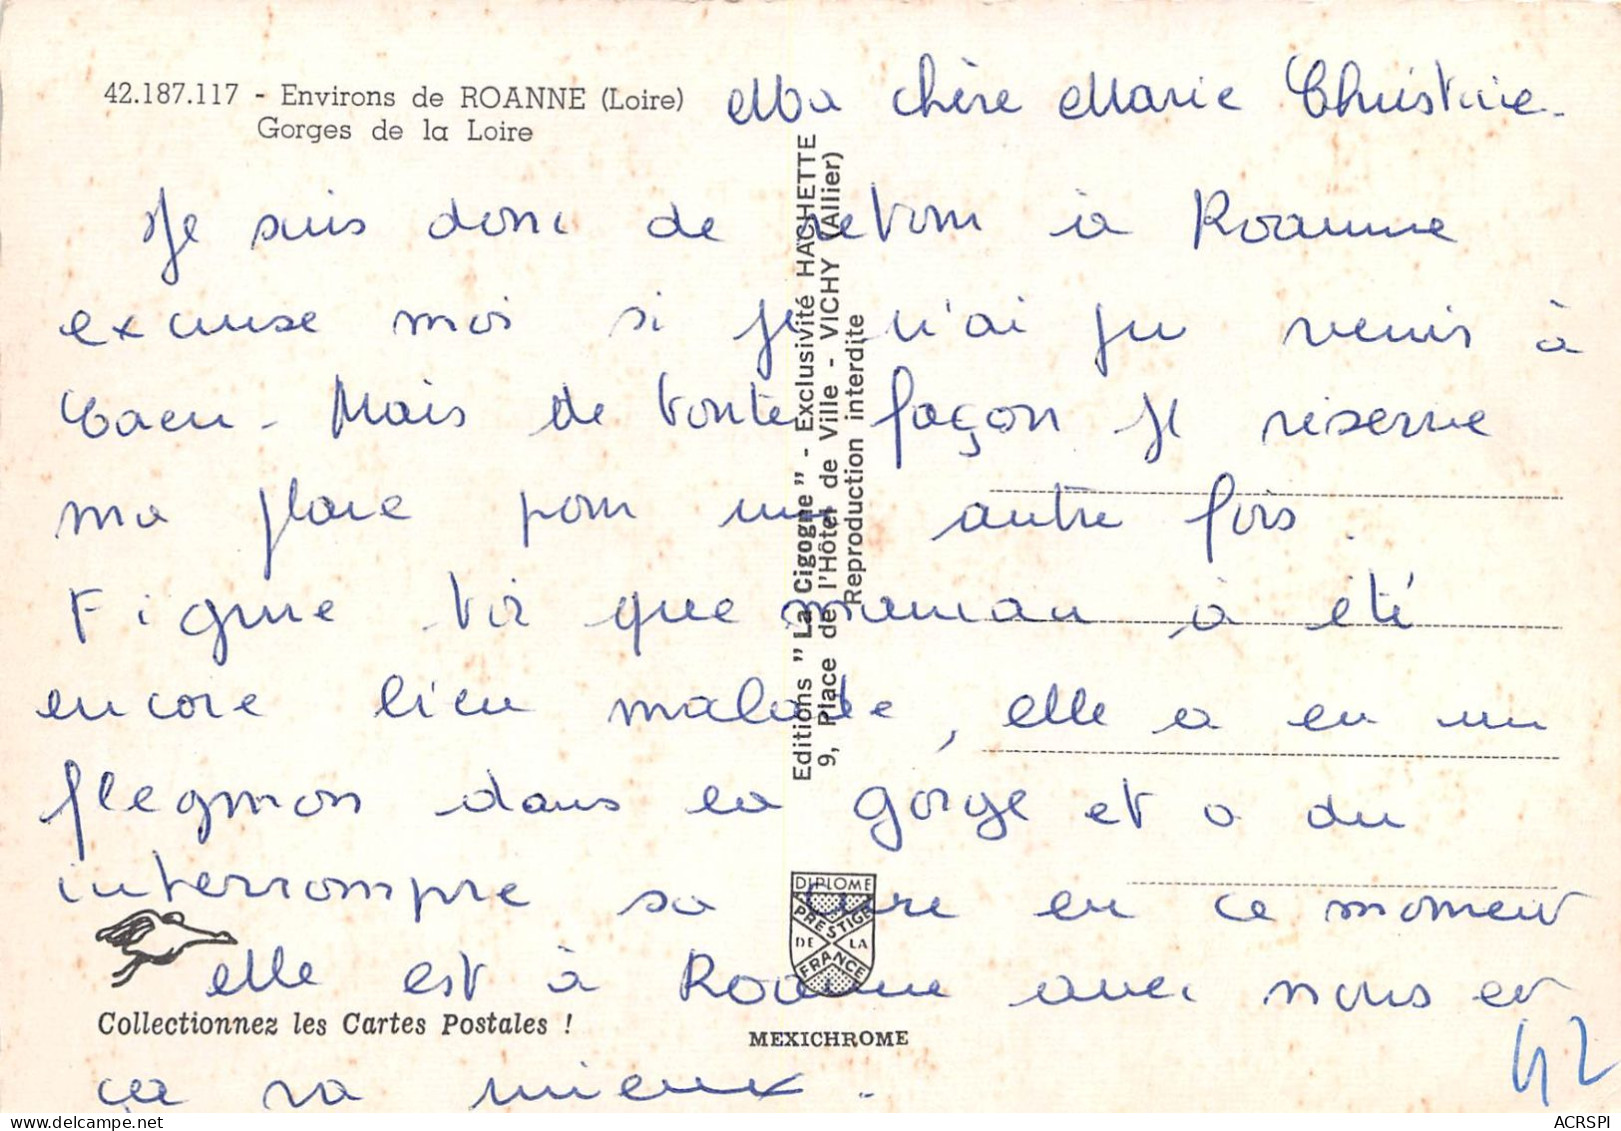 42.187.117 - Environs de ROANNE (Loire)
Gorges de la Loire
Ma chère Marie Christine.
Je suis donc de retour à Roanne
excuse moi si je n'ai pu venir à
Caen. Mais de toute façon je réserve
ma place pour une autre fois.
Figure toi que maman à été
encore bien malade, elle a eu un
flegmon dans la gorge et a du
interrompre sa cure en ce moment
elle est à Roanne avec nous et
ça va mieux.
Editions "La Cigogne" - Exclusivité HACHETTE
9, Place de l'Hôtel de Ville - VICHY (Allier)
Reproduction interdite
DIPLOME
PRESTIGE
DE LA
FRANCE
Collectionnez les Cartes Postales !
MEXICHROME
42
ACRSPI